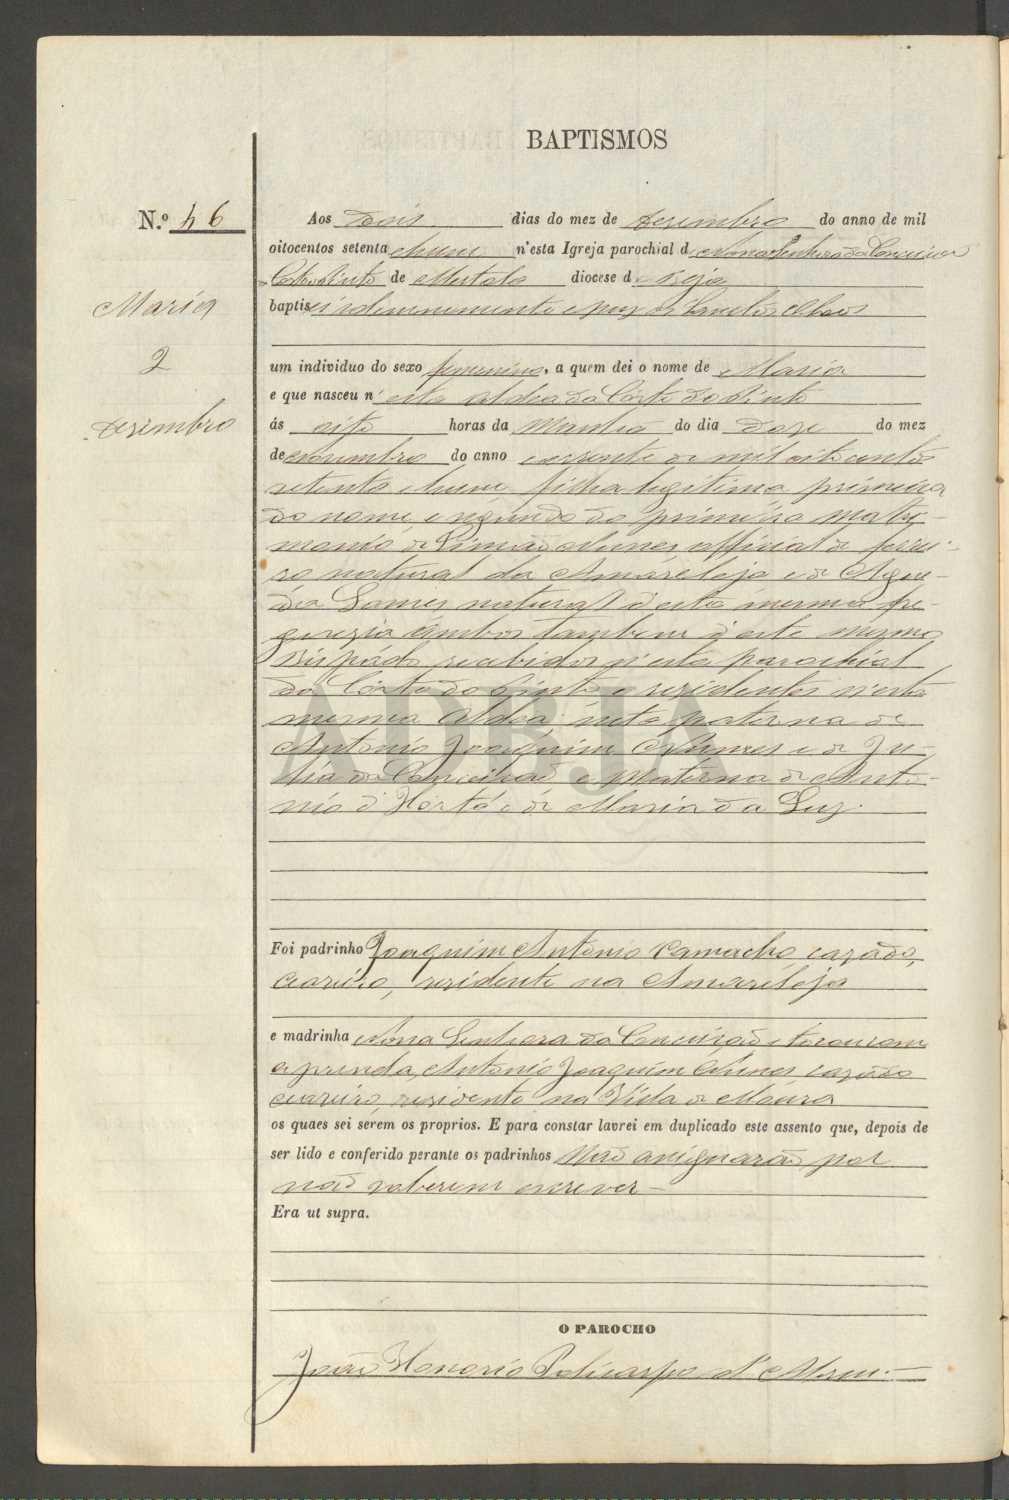 BAPTISMOS
N.º 46
Maria
2
Dezimbro
Aos Dois dias do mez de Dezimbro do anno de mil
oitocentos setenta e huni n'esta Igreja parochial d Nossa Senhora da Conceicão
Corte do Pinto de Mertola diocese d Beja
baptisei solemnemente e puz os Santos Oleos
um individuo do sexo femenino, a quem dei o nome de Maria
e que nasceu n'esta Aldea da Corte do Pinto
ás oito horas da Manhã do dia Doze do mez
de Novembro do anno corrente de mil oito centos
setenta e huni filha legitima primeira
do nome e segunda do primeiro matri-
monio de Simão Nunes official de ferrei-
ro natural da Amareleja e de Ague-
da Gomes natural d'esta mesma fre-
guezia ambos tambem d'este mesmo
Bispado recebidos n'esta parochial
da Corte do Pinto e rezidentes n'esta
mesma Aldea neta paterna de
Antonio Joaquim Nunes e de Ju-
lia da Conceicão e Materna de Anto-
nio d'Horta e de Maria da Luz.
Foi padrinho Joaquim Antonio Camacho, cazado,
ceareiro, rezidente na Amareleja
e madrinha Nossa Senhora da Conceicão e tocou com
a prenda, Antonio Joaquim Nunes cazado
ceareiro, rezidente na Villa de Moura
os quaes sei serem os proprios. E para constar lavrei em duplicado este assento que, depois de
ser lido e conferido perante os padrinhos Não assignarão por
não saberem escrever
Era ut supra.
O PAROCHO
João Honorio Policarpo d'
ADBJA